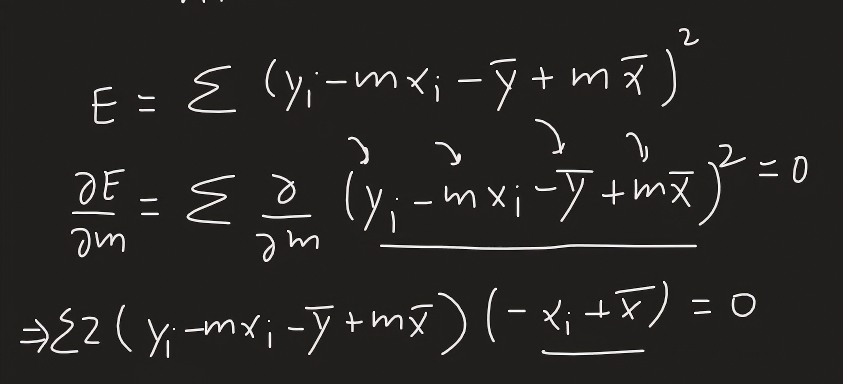 E = Σ (yᵢ - mxᵢ - ȳ + mx̄)²
∂E/∂m = Σ ∂/∂m (yᵢ - mxᵢ - ȳ + mx̄)² = 0
⇒ Σ2(yᵢ - mxᵢ - ȳ + mx̄)(-xᵢ + x̄) = 0